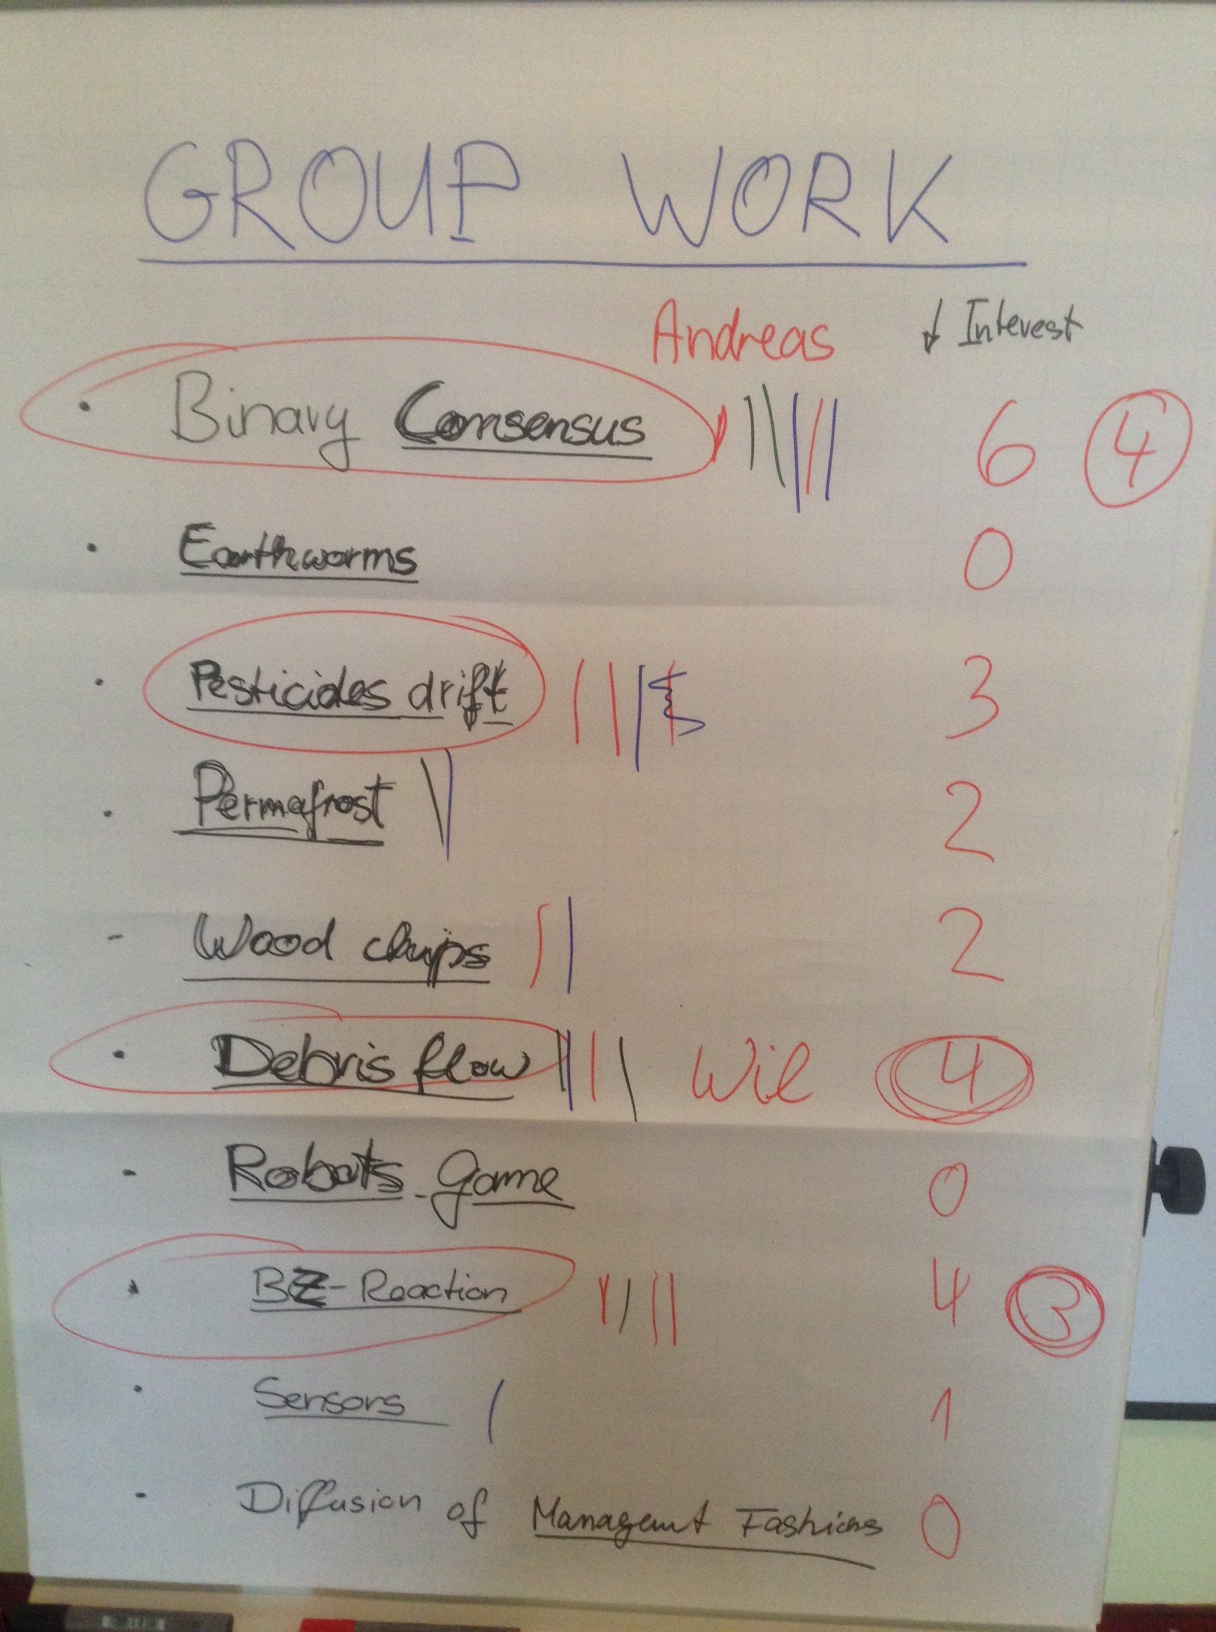 GROUP WORK
Andreas ↓ Interest
• Binary Consensus 6 4
• Earthworms 0
• Pesticides drift 3
• Permafrost 2
- Wood chips 2
• Debris flow Wil 4
- Robots Game 0
• BZ-Reaction 4 3
• Sensors 1
- Diffusion of Managemt Fashions 0